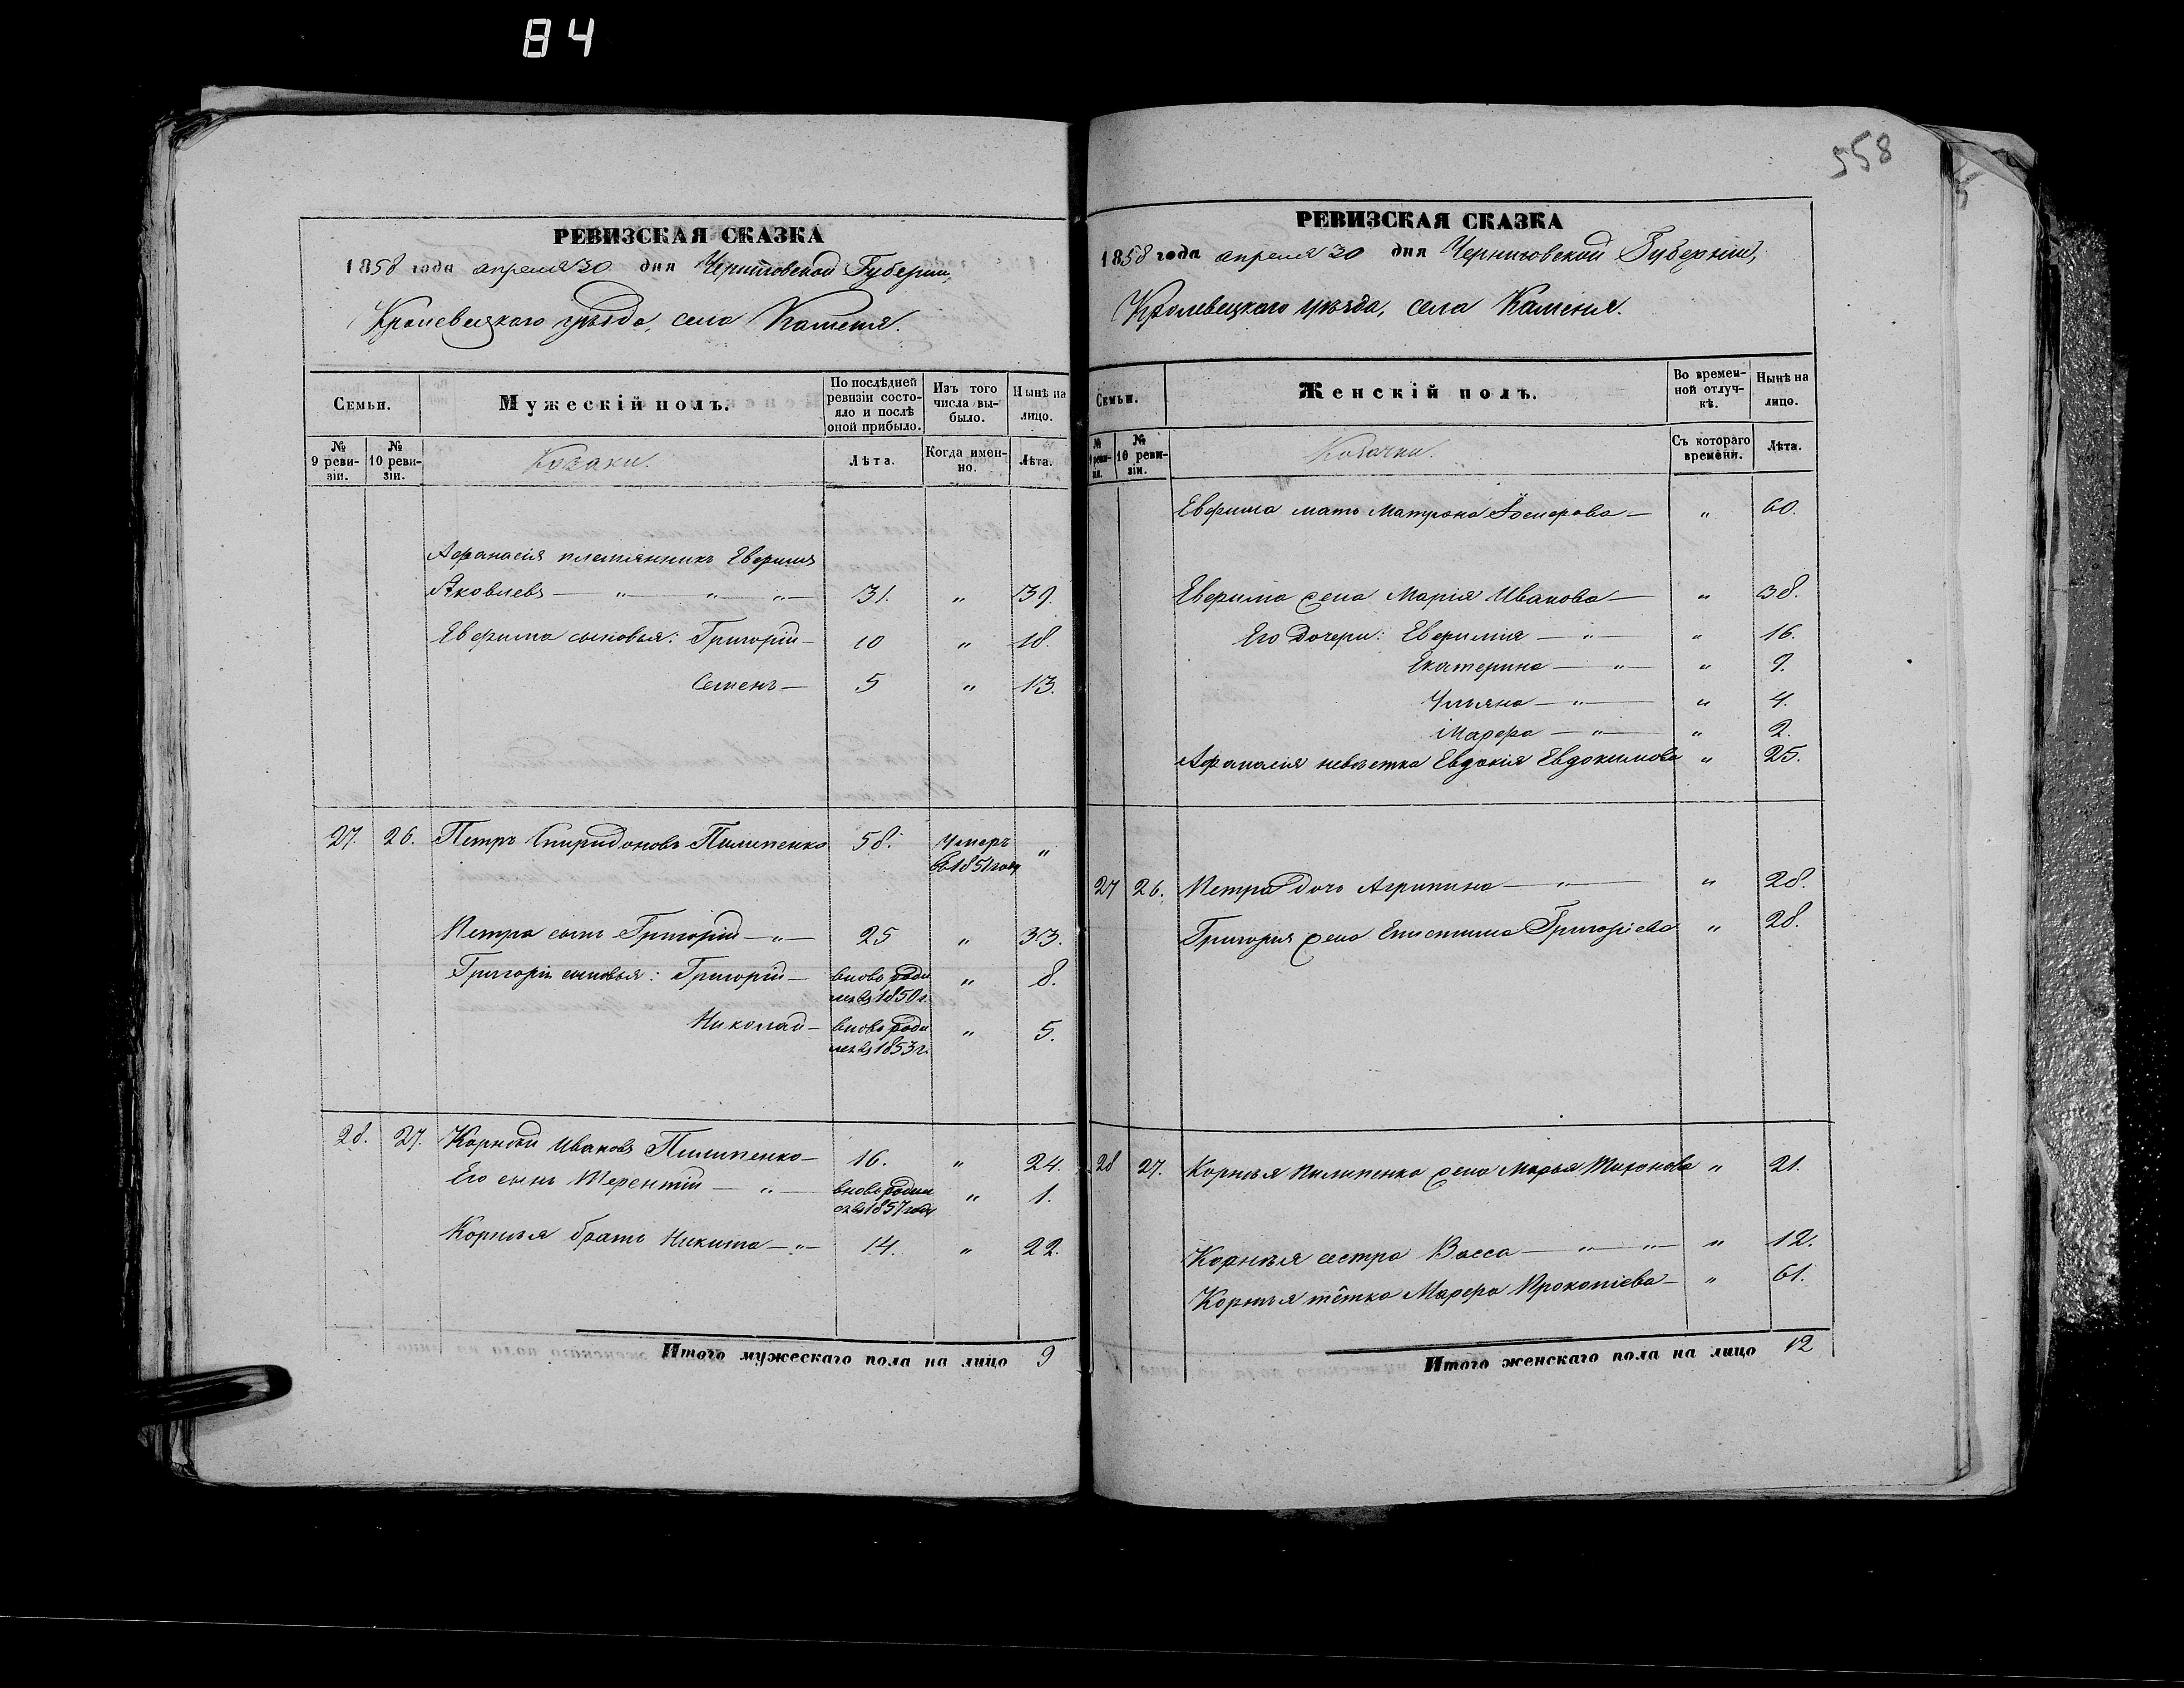 84
558
РЕВИЗСКАЯ СКАЗКА
1858 года апреля 30 дня Черниговской Губернии,
Кролевецкаго уѣзда, села Каменя.
Семьи.
Мужескій полъ.
По послѣдней ревизіи состояло и послѣ оной прибыло.
Изъ того числа выбыло.
Нынѣ на лицо.
№ 9 ревизіи.
№ 10 ревизіи.
Козаки.
Лѣта.
Когда именно.
Лѣта.
Афанасія племянникъ Евфимъ
Яковлевъ — " — " — " — 31. " 39.
Евфима сыновья: Григорій — 10 " 18.
Семенъ — 5 " 13.
27. 26. Петръ Спиридоновъ Пилипенко 58. умеръ "
въ 1851 году
Петра сынъ Григорій — " — 25 " 33.
Григорія сыновья: Григорій — вновь роди " 8.
лся въ 1850 г.
Николай — вновь роди " 5.
лся въ 1853 г.
28. 27. Корнѣй Ивановъ Пилипенко — 16. " 24.
Его сынъ Терентій — " — вновь родил " 1.
ся въ 1857 году
Корнѣя братъ Никита — " — 14. " 22.
Итого мужескаго пола на лицо 9
РЕВИЗСКАЯ СКАЗКА
1858 года апреля 30 дня Черниговской Губерніи,
Кролевецкаго уѣзда, села Каменя.
Семьи.
Женскій полъ.
Во временной отлучкѣ.
Нынѣ на лицо.
№ 9 ревизіи.
№ 10 ревизіи.
Козачки.
Съ котораго времени.
Лѣта.
Евфима мать Матрона — " 60.
Евфима жена Марія Иванова — " 38.
Его дочери: Евфимія — " — " 16.
Екатерина — " — " 9.
Ульяна — " — " 4.
Марфа — " — " 2.
Афанасія невѣстка Евдокія Евдокимова " 25.
27 26. Петра дочь Агрипина — " — " 28.
Григорія жена Епистима Григоріева " 28.
28 27. Корнѣя Пилипенка жена Марья Тихонова " 21.
Корнѣя сестра Васса — " — " — " 12.
Корнѣя тётка Марфа Прокопіева — " 61.
Итого женскаго пола на лицо 12